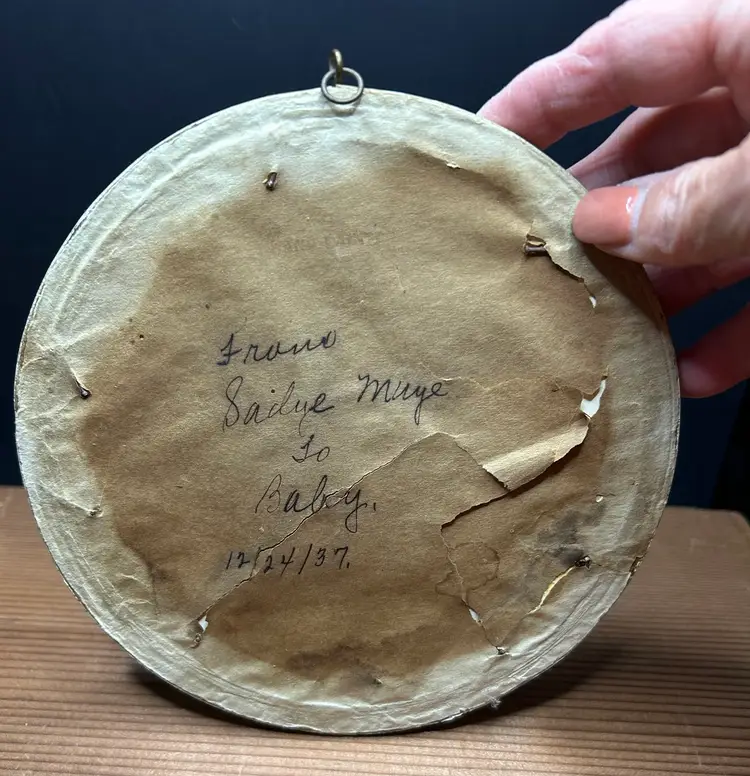 From
Sadye Muye
To
Baby.
12/24/37.